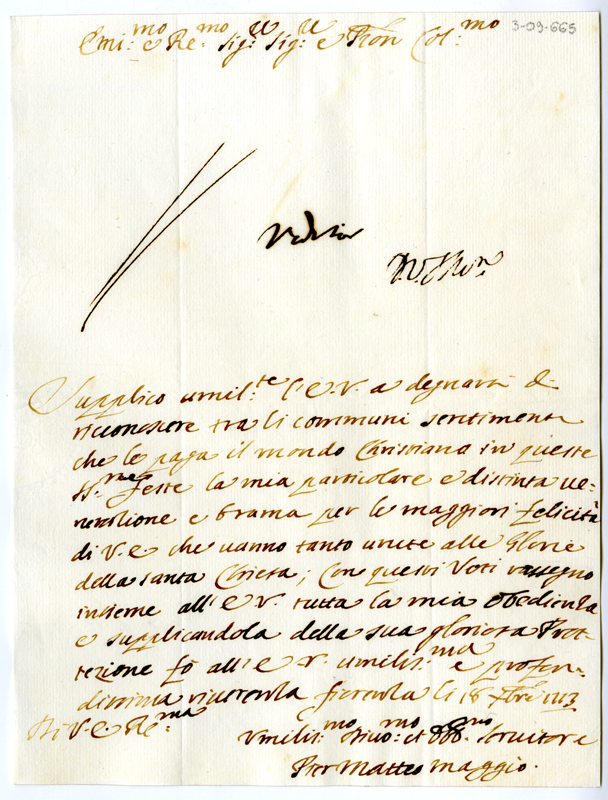 Emi:mo e Re:mo Sig:r Sig:r e Pron Col:mo
3-09-665
Supplico umil:te l'E.V. a degnarsi di
riconoscere tra li communi sentimenti
che le paga il mondo Christiano in queste
SS.me feste la mia particolare e distinta ve-
neratione e brama per le maggiori felicità
di V.E. che vanno tanto unite alle Glorie
della Santa Chiesa; Con questi Voti rassegno
insieme all'E.V. tutta la mia obedienza
e supplicandola della sua gloriosa Prot-
tezione fò all'E.V. umilis:ma e profon-
dissima riverenza li 18 Xbre 1713
Di V.E. Re:ma
Umilis:mo Divo:mo et Obb:mo Servitore
Pier Matteo Maggio.